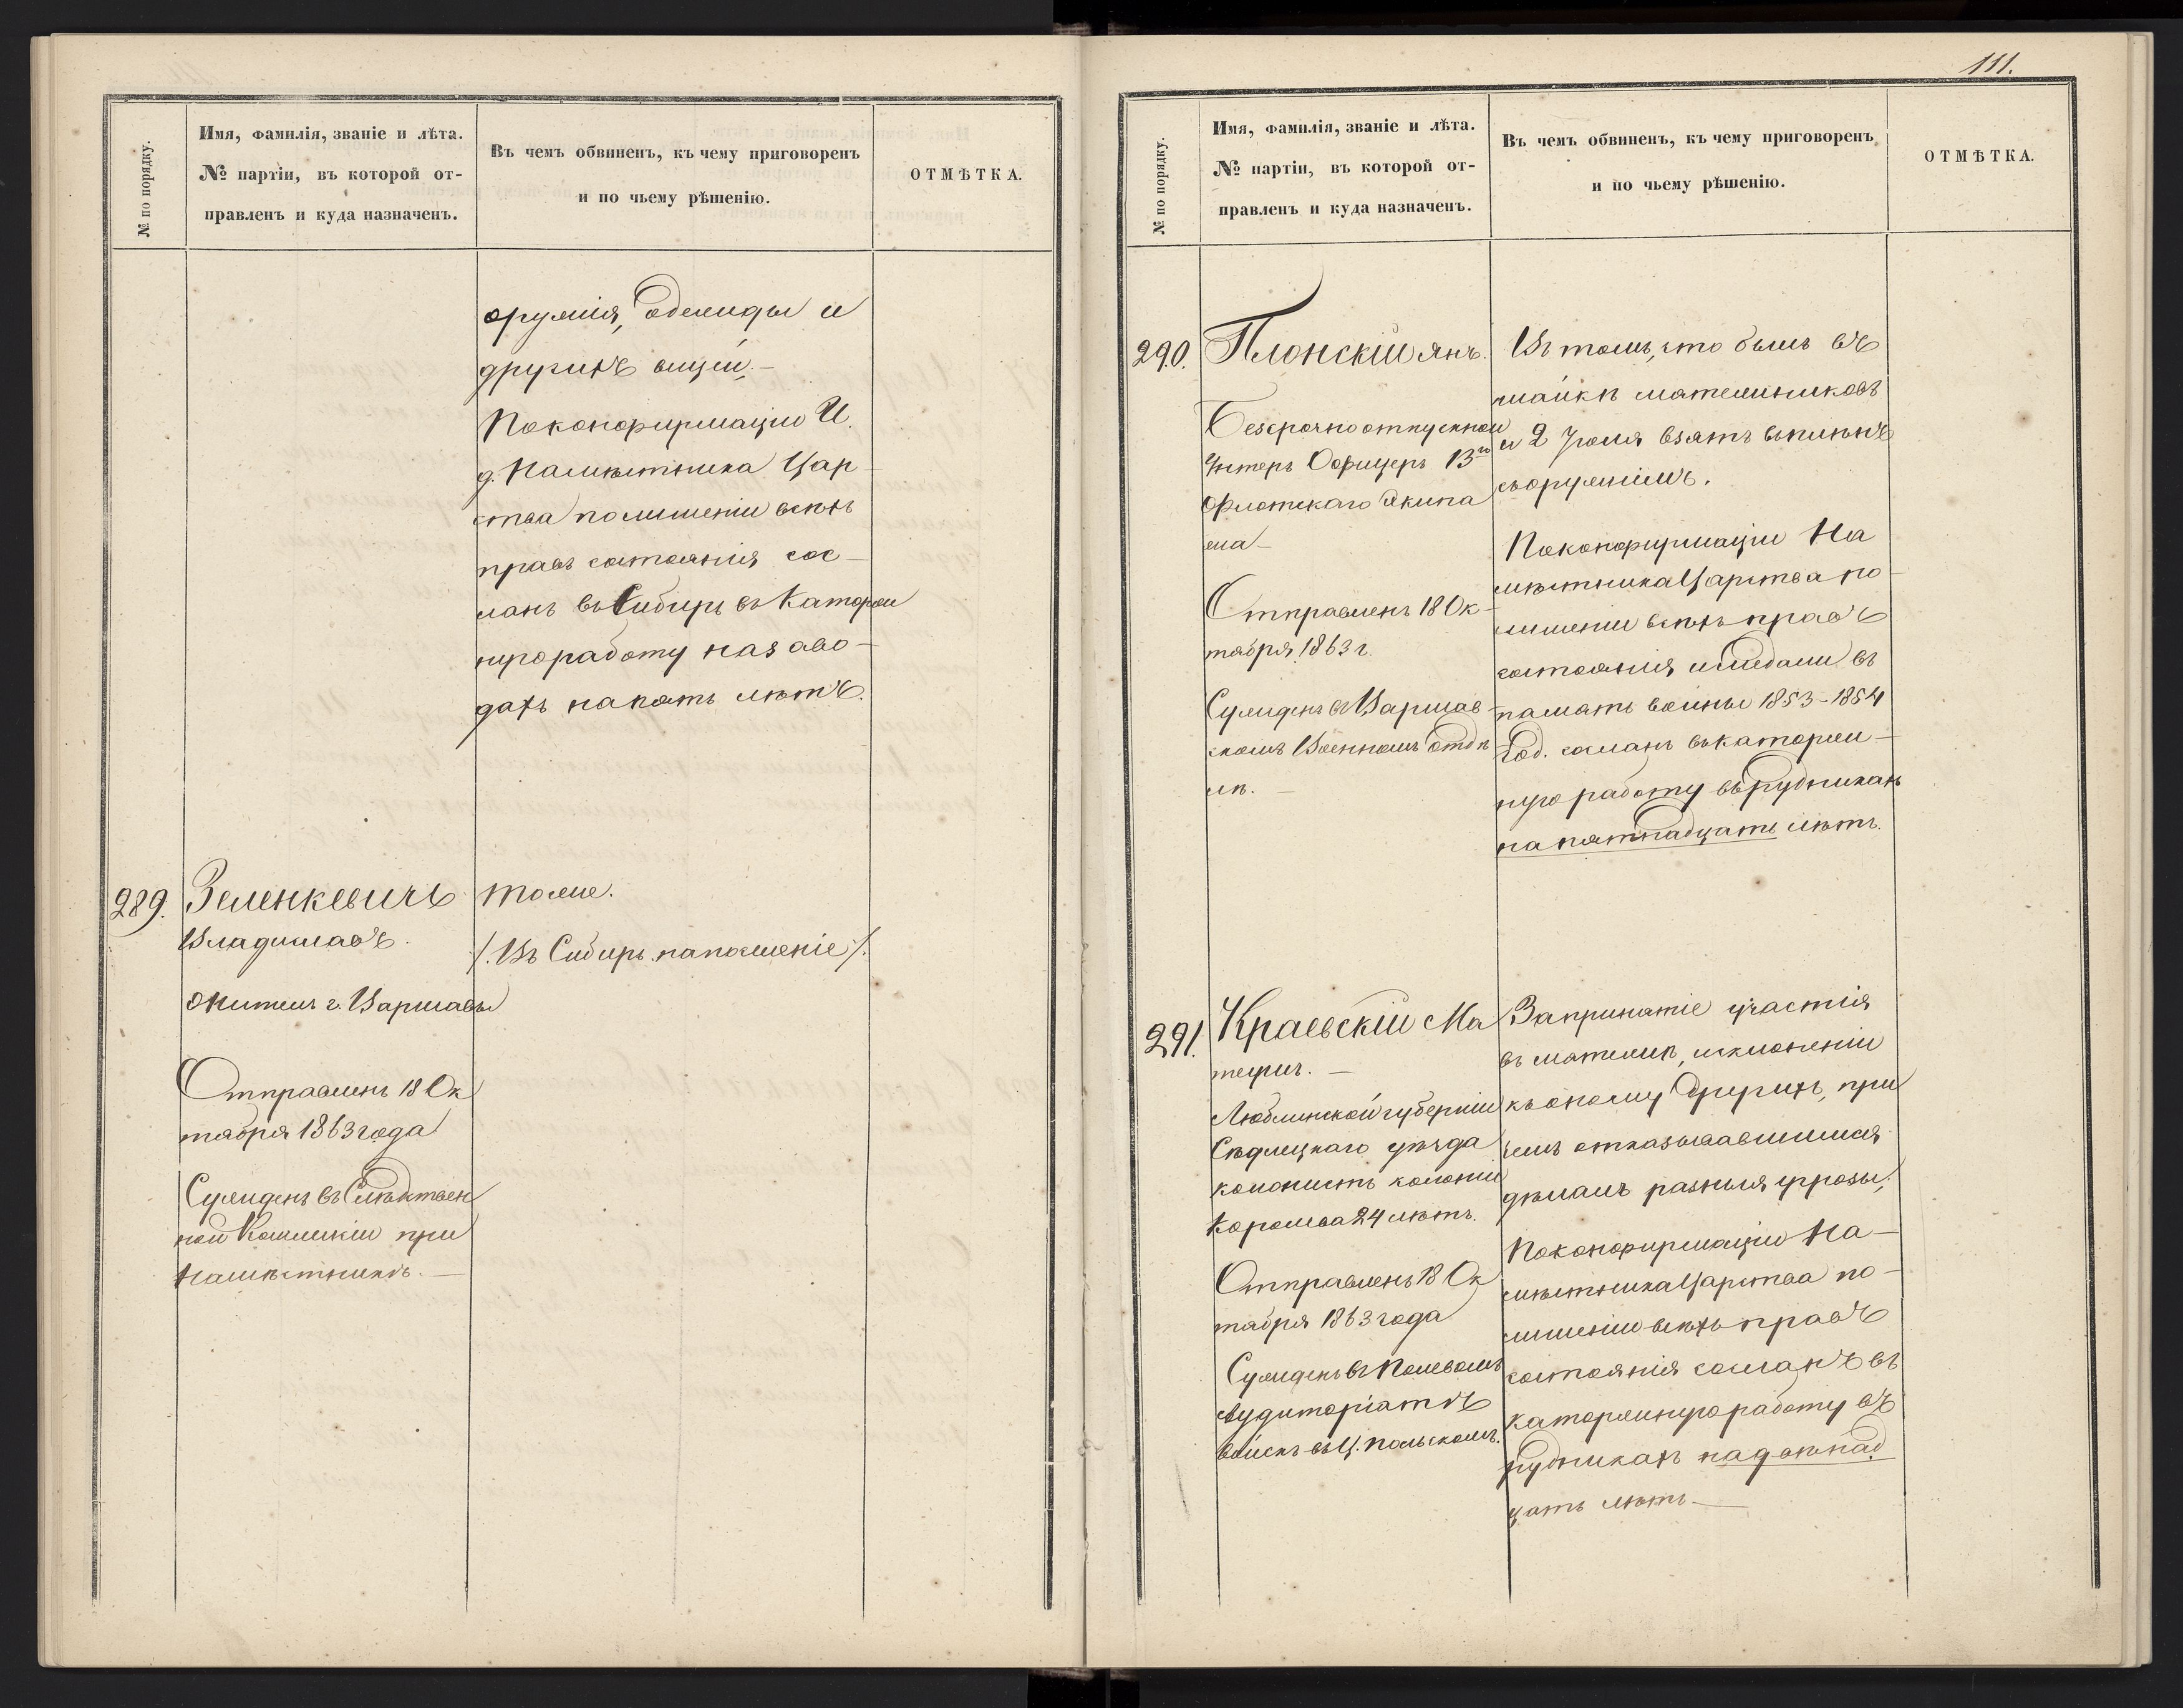 № по порядку.
Имя, фамилія, званіе и лѣта.
№ партіи, въ которой от-
правленъ и куда назначенъ.
Въ чемъ обвиненъ, къ чему приговоренъ
и по чьему рѣшенію.
ОТМѢТКА.
оружія, одежды и
другихъ вещей.—
По конфирмаціи И.
д. Намѣстника Цар-
ства по лишеніи всѣхъ
правъ состоянія сос-
ланъ въ Сибирь въ Каторж
ную работу на заво-
дахъ на пять лѣтъ.
289.
Зеленкевичъ
Владиславъ.
Житель г. Варшавы
Отправленъ 18 Ок
тября 1863 года
Сужденъ въ Слѣдствен
ной Коммисіи при
Намѣстникѣ.—
тоже.
/. Въ Сибирь на поселеніе /.
111.
№ по порядку.
Имя, фамилія, званіе и лѣта.
№ партіи, въ которой от-
правленъ и куда назначенъ.
Въ чемъ обвиненъ, къ чему приговоренъ
и по чьему рѣшенію.
ОТМѢТКА.
290.
Плонскій Янъ.
Безсрочноотпускной
Унтеръ Офицеръ 13го
Флотскаго Экипа
жа—
Отправленъ 18 Ок-
тября 1863 г.
Сужденъ въ Варшав-
скомъ Военномъ отдѣ
лѣ.—
Въ томъ, что былъ въ
шайкѣ мятежниковъ
и 2 Іюля взятъ въ плѣнъ
съ оружіемъ.
По конфирмаціи На
мѣстника Царства по-
лишеніи всѣхъ правъ
состоянія и медали въ
память войны 1853-1854
год. сосланъ въ каторж-
ную работу въ рудникахъ
на пятнадцать лѣтъ.
291.
Краевскій Ма
теушъ.—
Люблинской губерніи
Сѣдлецкаго уѣзда
колонистъ колоніи
Королева 24 лѣтъ.
Отправленъ 18 Ок
тября 1863 года
Сужденъ въ Полевомъ
Аудиторіатѣ
войскъ въ Ц. Польскомъ.
За принятіе участія
въ мятежѣ, и склоненіи
къ оному другихъ, при
чемъ отказывавшимся
дѣлалъ разныя угрозы,
По конфирмаціи На-
мѣстника Царства по-
лишеніи всѣхъ правъ
состоянія сосланъ въ
каторжную работу въ
рудникахъ на двѣнад
цать лѣтъ—